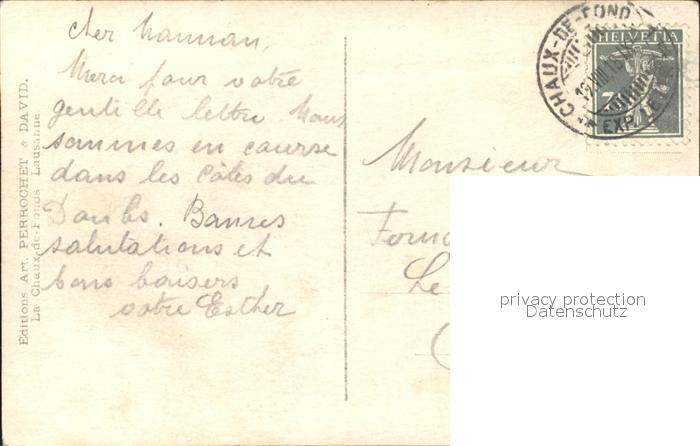 cher Maman,
Merci pour votre
gentille lettre Nous
sommes en course
dans les Côtes du
Doubs. Bonnes
salutations et
bons baisers
votre Esther
Editions Art. PERROCHET & DAVID.
La Chaux-de-Fonds Lausanne
CHAUX-DE-FOND
EXP. LE
HELVETIA
7
Monsieur
Le
privacy protection
Datenschutz